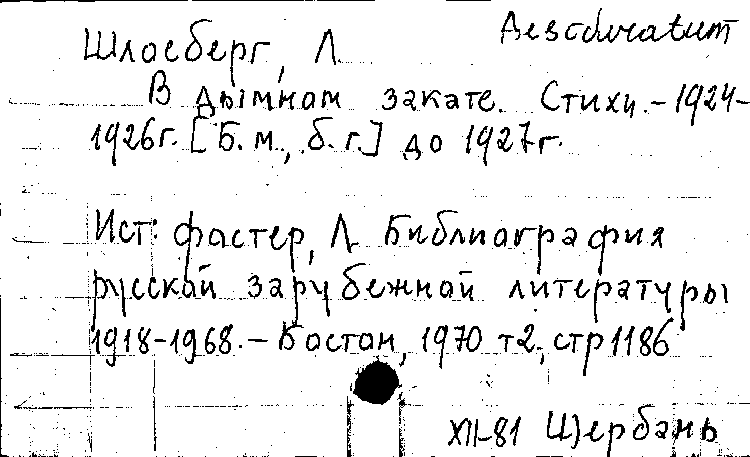 Desiduratum
Шлосберг, Л.
В дымном закате. Стихи. - 1924-
1926г. [Б.м., б.г.] до 1927г.
Ист: Фостер, Л. Библиография
русской зарубежной литературы
1918-1968. - Бостон, 1970 т2, стр 1186
XII-81 Щербань